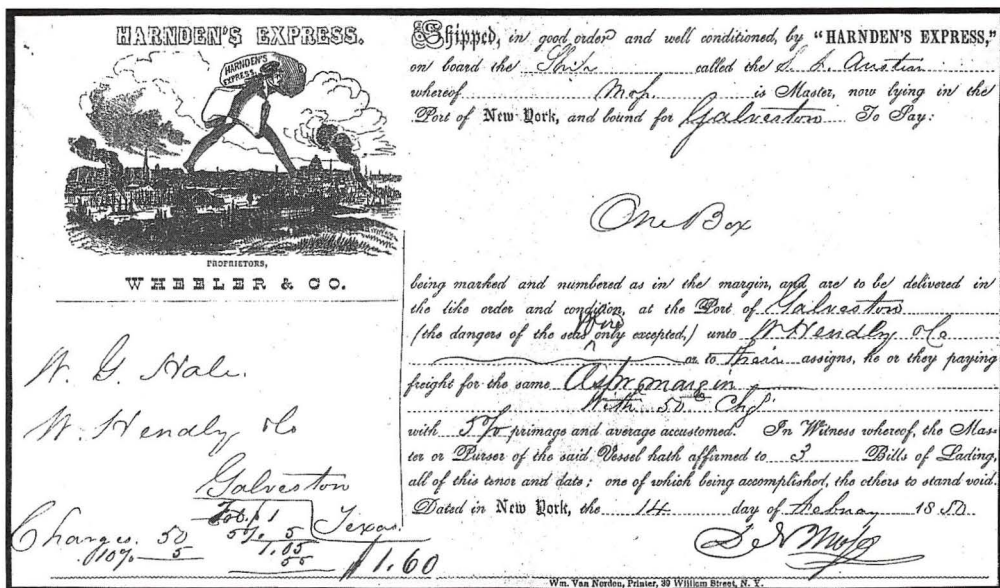 HARNDEN'S EXPRESS.
HARNDEN'S
EXPRESS.
PROPRIETORS,
WHEELER & CO.
W. G. Hale.
W. Hendly & Co
Galveston
Texas.
1
5% 5
1.05
55
Charges. 50
10% 5
$1.60
Shipped, in good order and well conditioned, by "HARNDEN'S EXPRESS,"
on board the Ship called the S. F. Austin
whereof is Master, now lying in the
Port of New York, and bound for Galveston To Pay:
One Box
being marked and numbered as in the margin, and are to be delivered in
the like order and condition, at the Port of Galveston
(the dangers of the seas fire only excepted,) unto W Hendly & Co
or to their assigns, he or they paying
freight for the same As pr margin
With 50 Chgs
with 5% primage and average accustomed. In Witness whereof, the Mas-
ter or Purser of the said Vessel hath affirmed to 3 Bills of Lading,
all of this tenor and date; one of which being accomplished, the others to stand void.
Dated in New York, the 14 day of Febuay 1850
Wm. Van Norden, Printer, 39 William Street, N. Y.